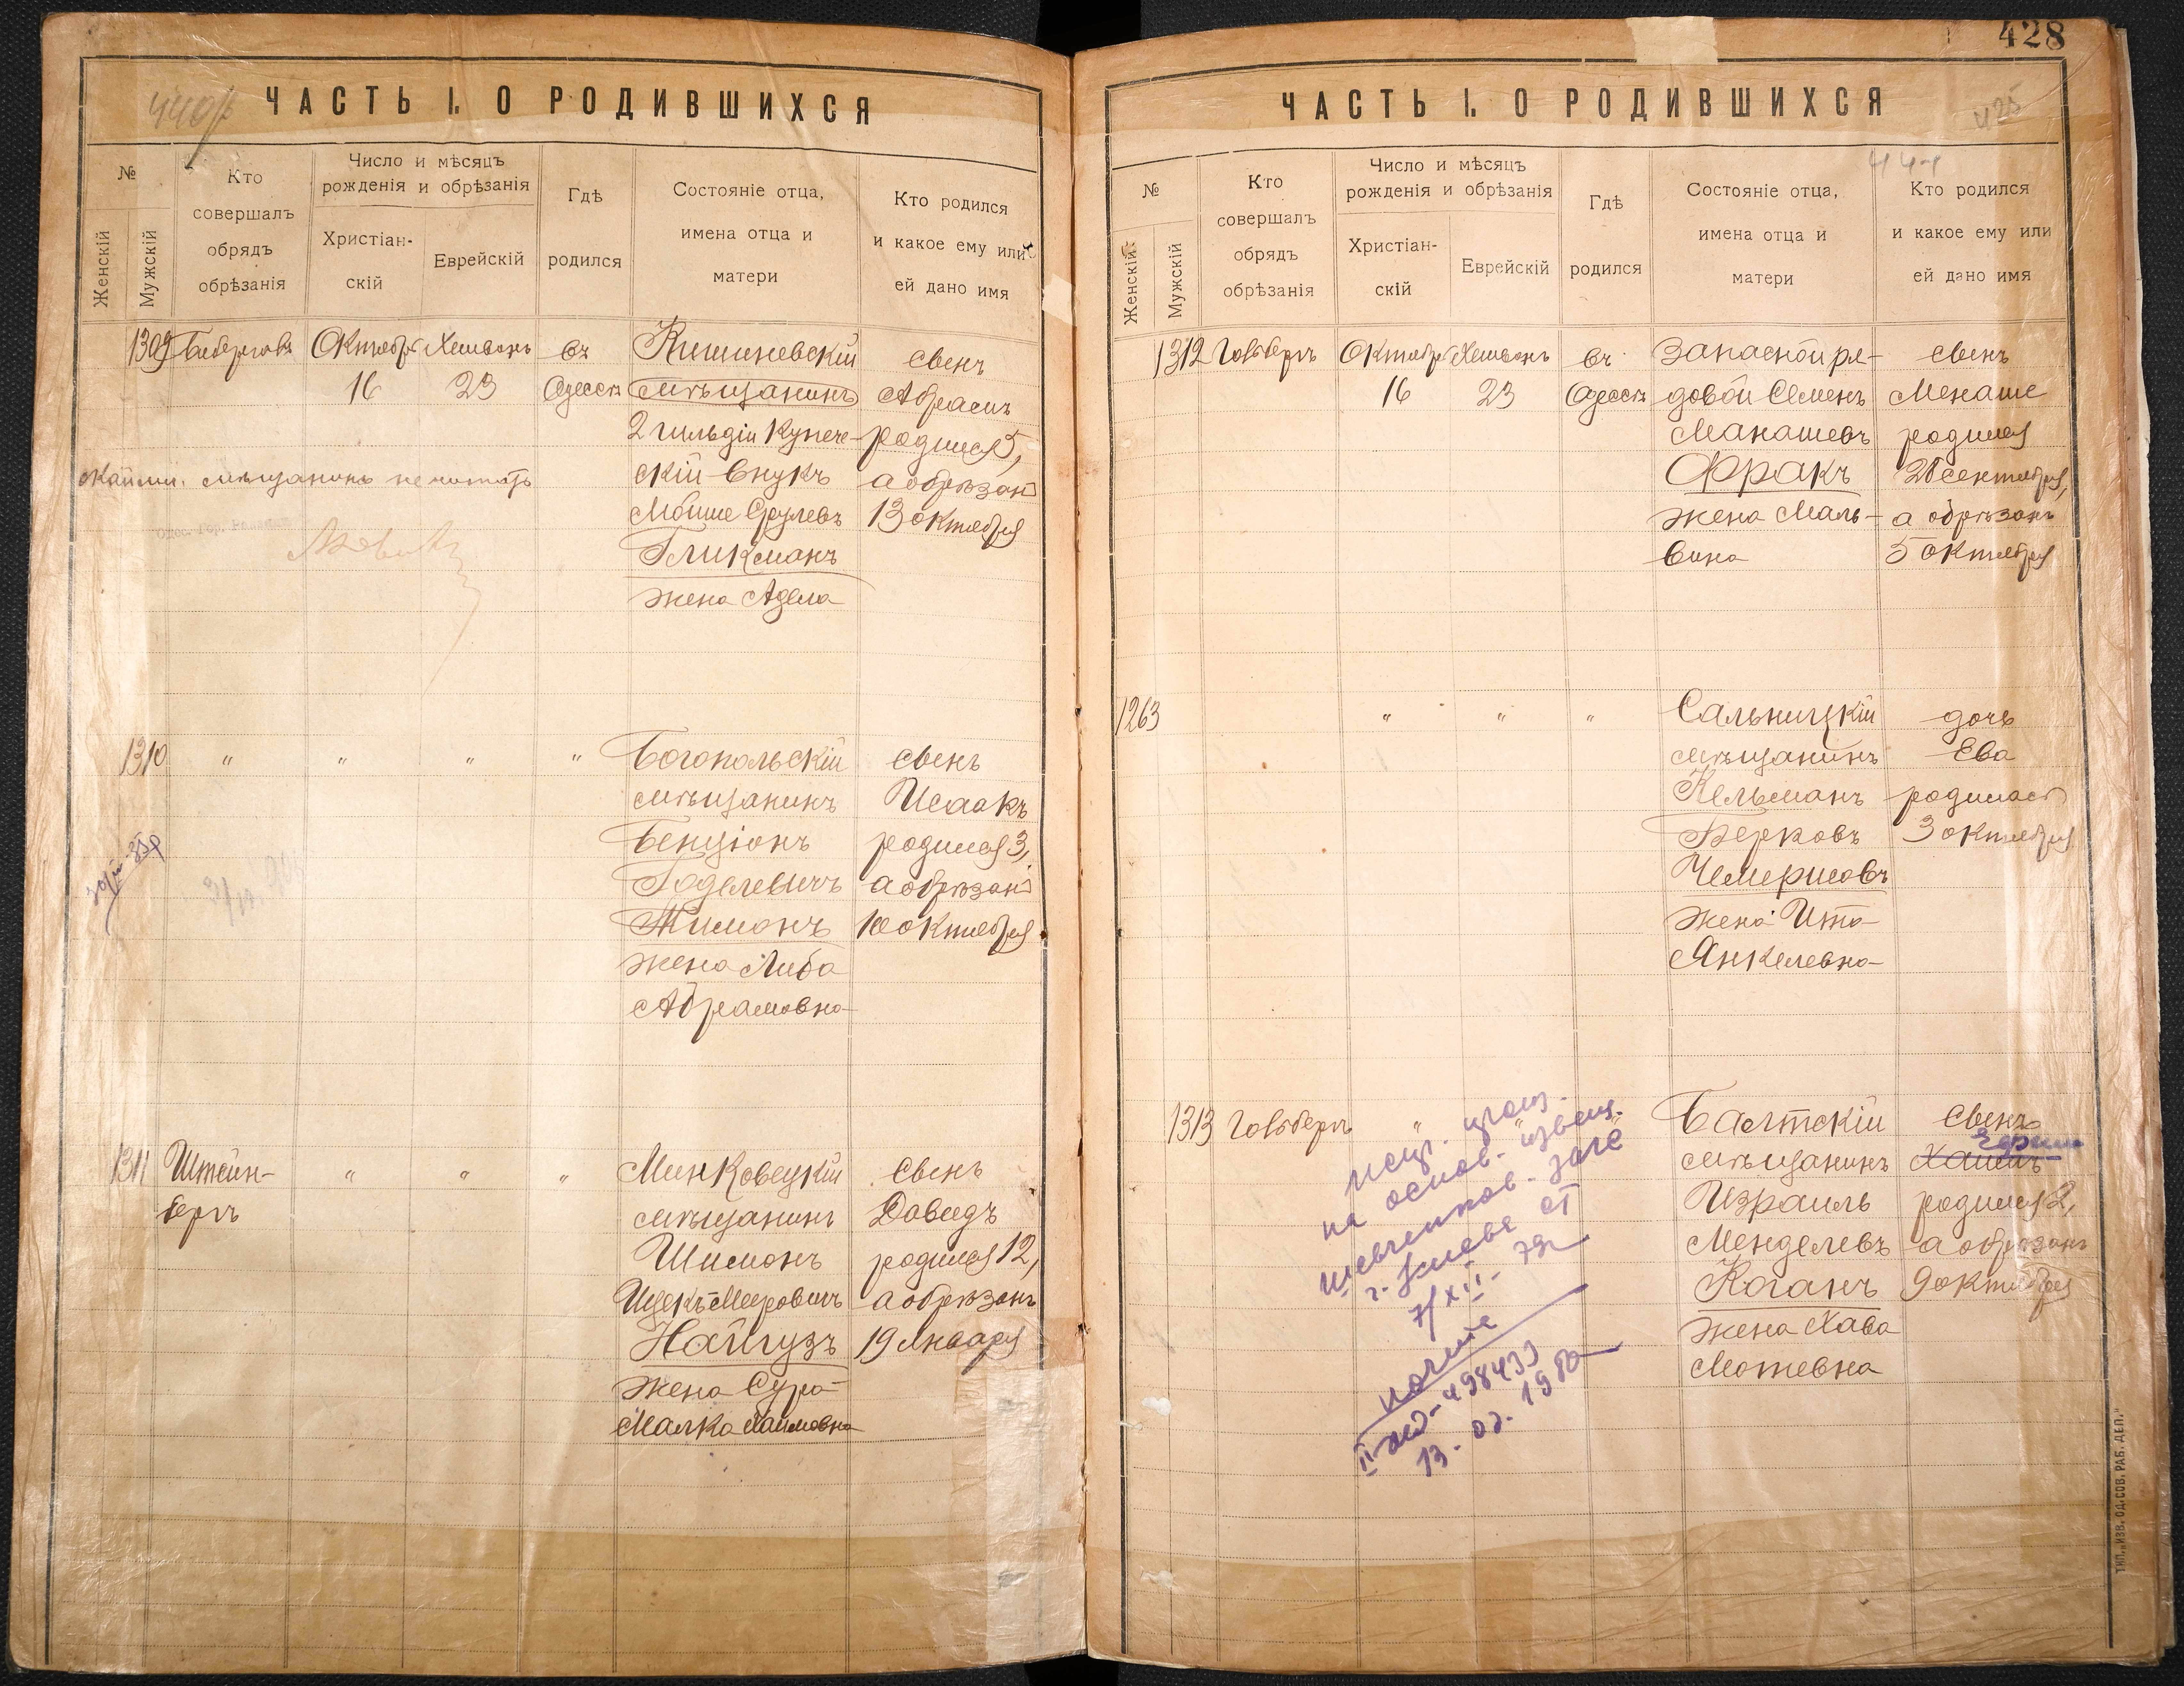 ЧАСТЬ I. О РОДИВШИХСЯ
№
Женскій
Мужскій
Кто
совершалъ
обрядъ
обрѣзанія
Число и мѣсяцъ
рожденія и обрѣзанія
Христіан-
скій
Еврейскій
Гдѣ
родился
Состояніе отца,
имена отца и
матери
Кто родился
и какое ему или
ей дано имя
1309
Октябрь
16
Хешвонъ
23
въ
Одессѣ
Кишиневскій
мѣщанинъ
2 гильдіи Купече-
скій внукъ
Мойше Срулевъ
Гликманъ
жена Адела
сынъ
Абрамъ
родился 5,
а обрѣзанъ
13 октября
мѣщанинъ не читать
1310
"
"
"
"
Богопольскій
мѣщанинъ
Бенціонъ
Годелевичъ
Жимонъ
жена Либа
Абрамовна
сынъ
Исаакъ
родился 3,
а обрѣзанъ
10 октября
1311
Штейн-
бергъ
"
"
"
Минковецкій
мѣщанинъ
Шимонъ
Ицекъ-Мееровичъ
Наймузъ
жена Сура
Малка Хаимовна
сынъ
Давидъ
родился 12,
а обрѣзанъ
19 Января
428
425
ЧАСТЬ I. О РОДИВШИХСЯ
№
Женскій
Мужскій
Кто
совершалъ
обрядъ
обрѣзанія
Число и мѣсяцъ
рожденія и обрѣзанія
Христіан-
скій
Еврейскій
Гдѣ
родился
Состояніе отца,
имена отца и
матери
Кто родился
и какое ему или
ей дано имя
1312
Гольбергъ
Октябрь
16
Хешвонъ
23
въ
Одессѣ
Запасной ря-
довой Семенъ
Манашевъ
Фракъ
жена Маль-
вина
сынъ
Менаше
родился
28 сентября,
а обрѣзанъ
5 октября
1263
"
"
"
Сальницкій
мѣщанинъ
Кельманъ
Берковъ
Чемерисовъ
жена Ита
Янкелевна
дочь
Ева
родилась
3 октября
1313
Гольбергъ
"
"
Балтскій
мѣщанинъ
Израиль
Менделевъ
Коганъ
жена Хава
Мотевна
сынъ
Хаимъ
родился 2,
а обрѣзанъ
9 октября
на основ. извещ.
шевченков. загс
г. Киева от
7/XII- 79г
13-02-1980
ТИП. „ИЗВ. ОД. СОВ. РАБ. ДЕП."